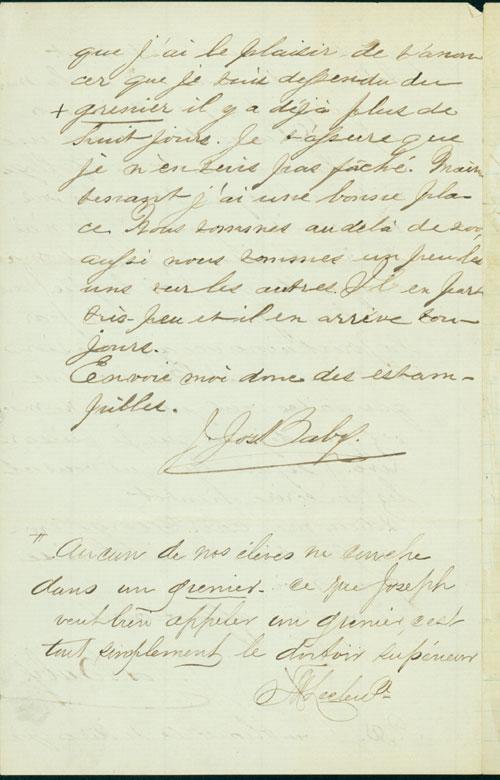 que j'ai le plaisir de t'annon
cer que je suis dessendu du
+ grenier il y a déjà plus de
huit jours. Je t'assure que
je n'en suis pas fâché. Main
tenant j'ai une bonne pla-
ce. Nous sommes au delà de
aussi nous sommes un peu les
uns sur les autres. Il en part
très-peu et il en arrive tou-
jours.
Envoie moi donc des estam-
pilles.
J. Jos. Baby.
+ Aucun de nos élèves ne couche
dans un grenier. ce que Joseph
veut bien appeler un grenier c'est
tout simplement le dortoir supérieur